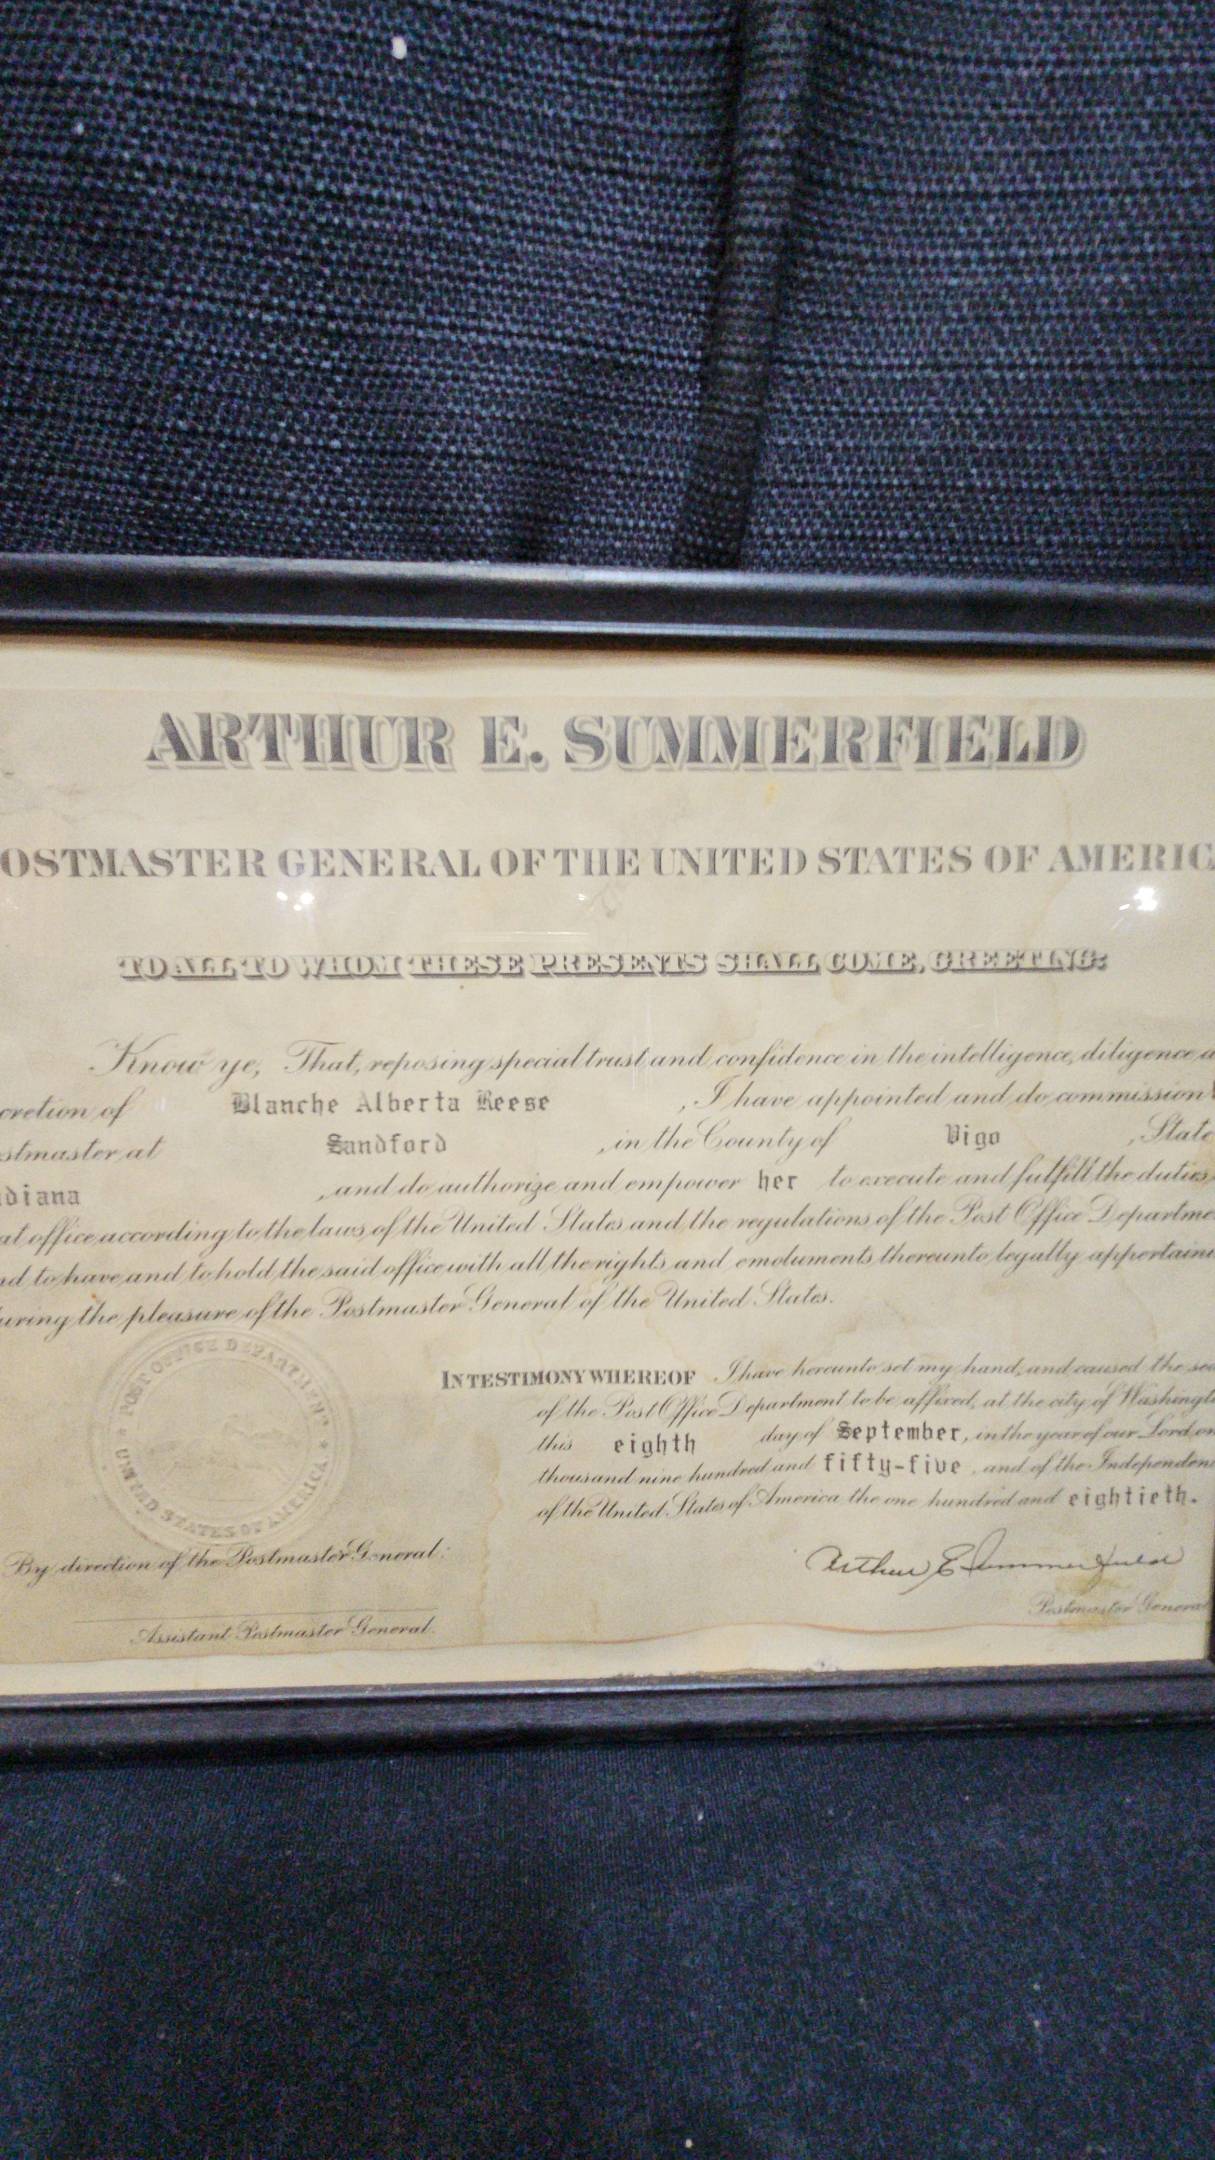 ARTHUR E. SUMMERFIELD
OSTMASTER GENERAL OF THE UNITED STATES OF AMERICA
TO ALL TO WHOM THESE PRESENTS SHALL COME, GREETING:
Know ye, That, reposing special trust and confidence in the intelligence, diligence a
cretion of Blanche Alberta Reese, I have appointed and do commission
stmaster at Sandford, in the County of Vigo, State
diana, and do authorize and empower her to execute and fulfill the duties
at office according to the laws of the United States and the regulations of the Post Office Departme
nd to have and to hold the said office with all the rights and emoluments thereunto legally appertaini
uring the pleasure of the Postmaster General of the United States.
POST OFFICE DEPARTMENT
UNITED STATES OF AMERICA
IN TESTIMONY WHEREOF I have hereunto set my hand, and caused the sea
of the Post Office Department to be affixed, at the city of Washingt
this eighth day of September, in the year of our Lord on
thousand nine hundred and fifty-five, and of the Independen
of the United States of America the one hundred and eightieth.
By direction of the Postmaster General:
Arthur E Summerfield
Postmaster General
Assistant Postmaster General.